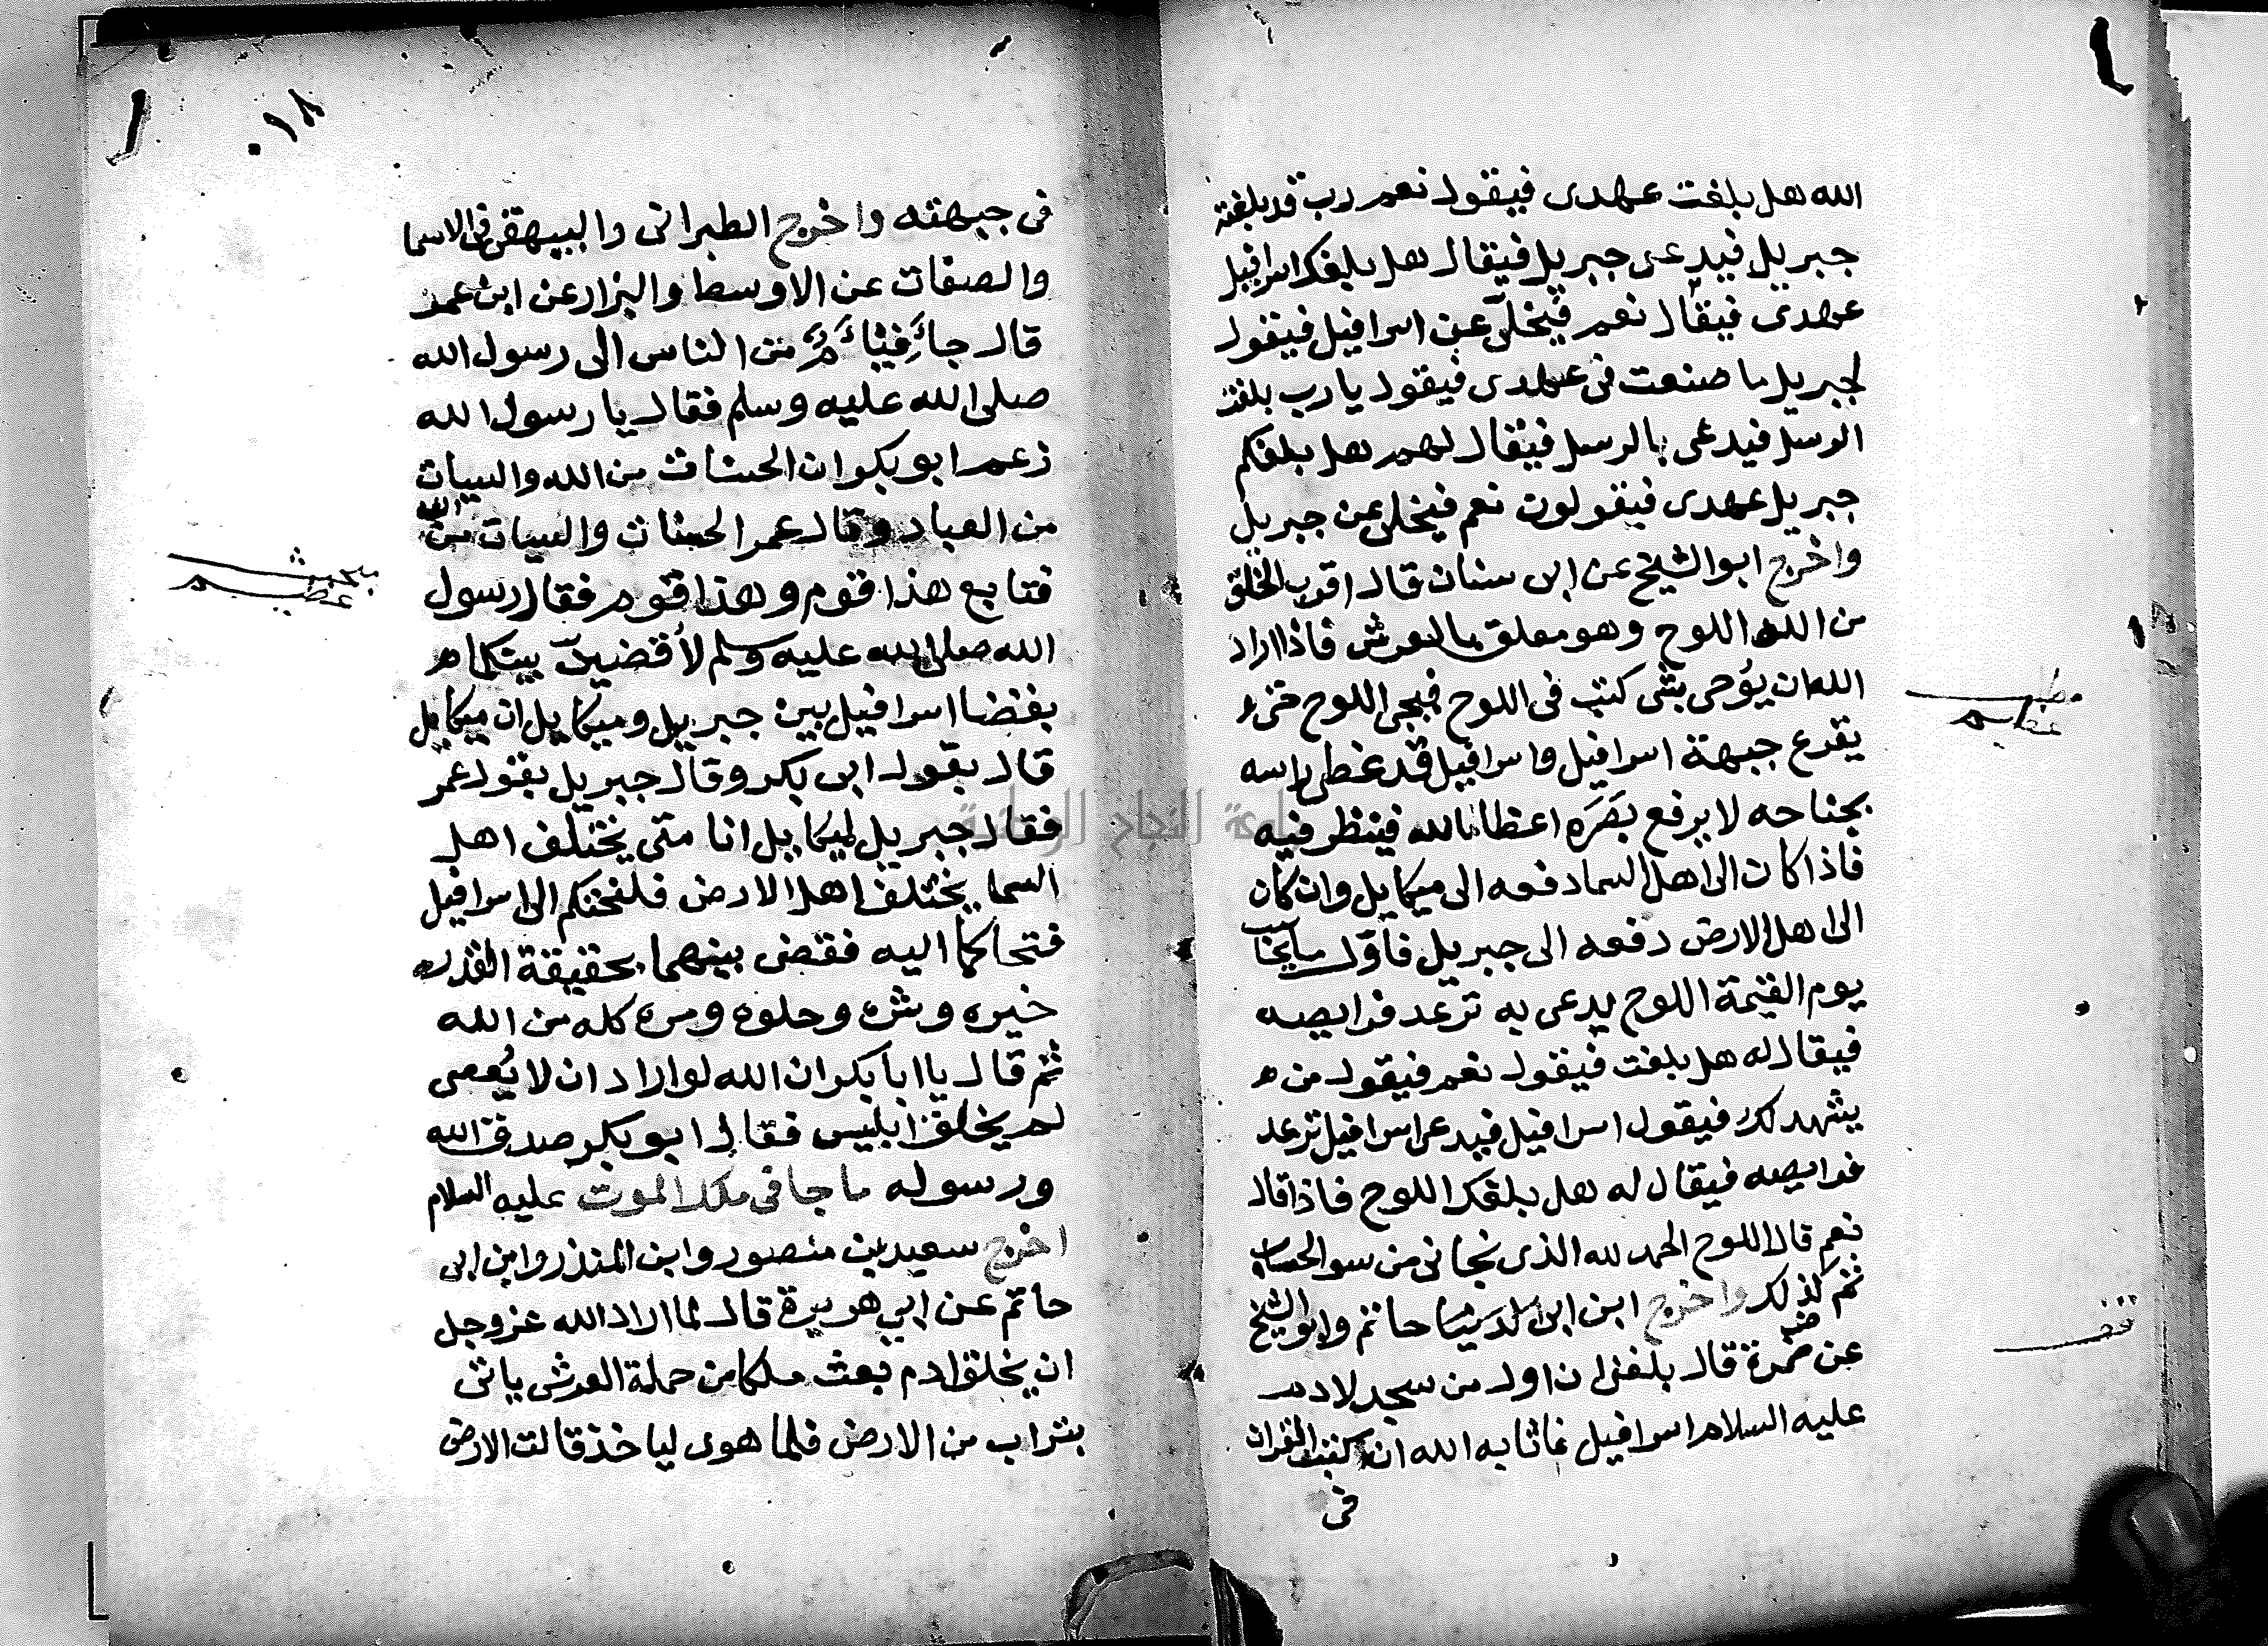 الله هل بلغت عهدى فيقول نعم رب قد بلغته
جبريل فيدعى جبريل فيقال هل بلغك اسرافيل
عهدى فيقال نعم فيخلى عن اسرافيل فيقول
لجبريل ما صنعت فى عهدى فيقول يارب بلغت
الرسل فيدعى بالرسل فيقال لهم هل بلغكم
جبريل عهدى فيقولون نعم فيخلى عن جبريل
واخرج ابو الشيخ عن ابى سنان قال اقرب الخلق
من الله اللوح وهو معلق بالعرش فاذا اراد
الله ان يوحى بشى كتب فى اللوح فيجى اللوح حتى
يقرع جبهة اسرافيل واسرافيل قد غطى راسه
بجناحه لا يرفع بصره اعظاما لله فينظر فيه
فاذا كان الى اهل السما دفعه الى ميكايل وان كان
الى اهل الارض دفعه الى جبريل فاول ما يحاسب
يوم القيمة اللوح يدعى به ترعد فرايصه
فيقال له هل بلغت فيقول نعم فيقول من
يشهد لك فيقول اسرافيل فيدعى اسرافيل ترعد
فرايصه فيقال له هل بلغك اللوح فاذا قال
نعم قال اللوح الحمد لله الذى نجانى من سو الحساب
ثم كذلك واخرج ابن ابى الدنيا حاتم وابو الشيخ
عن ضمرة قال بلغنى ان اول من سجد لادم
عليه السلام اسرافيل فاثابه الله ان كتب القران
فى
مطلب
عظيم
قف
٠١٨
فى جبهته واخرج الطبرانى والبيهقى فى الاسما
والصفات عن الاوسط والبزار عن ابن عمر
قال جاء فيام من الناس الى رسول الله
صلى الله عليه وسلم فقال يا رسول الله
زعم ابو بكر ان الحسنات من الله والسيات
من العباد وقال عمر الحسنات والسيات من الله
فتابع هذا قوم وهذا قوم فقال رسول
الله صلى الله عليه وسلم لأقضين بينكما
بقضا اسرافيل بين جبريل وميكايل ان ميكايل
قال بقول ابى بكر وقال جبريل بقول عمر
فقال جبريل لميكايل انا متى يختلف اهل
السما يختلف اهل الارض فلنتحكم الى اسرافيل
فتحاكما اليه فقضى بينهما بحقيقة القدر
خيره وشره وحلوه ومره كله من الله
ثم قال يا ابا بكر ان الله لو اراد ان لا يُعصى
لم يخلق ابليس فقال ابو بكر صدق الله
ورسوله ما جا فى ملك الموت عليه السلام
اخرج سعيد بن منصور وابن المنذر وابن ابى
حاتم عن ابي هريرة قال لما اراد الله عز وجل
ان يخلق ادم بعث ملكا من حملة العرش ياتى
بتراب من الارض فلما هوى لياخذ قالت الارض
مبحث
عظيم
جامعة النجاح الوطنية